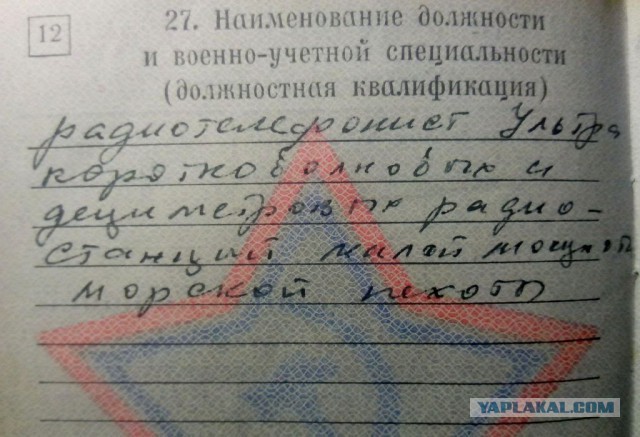 12
27. Наименование должности
и военно-учетной специальности
(должностная квалификация)
радиотелефонист Ультра
коротковолновых и
дециметровых радио-
станций малой мощност
морской пехоты
YAPLAKAL.COM